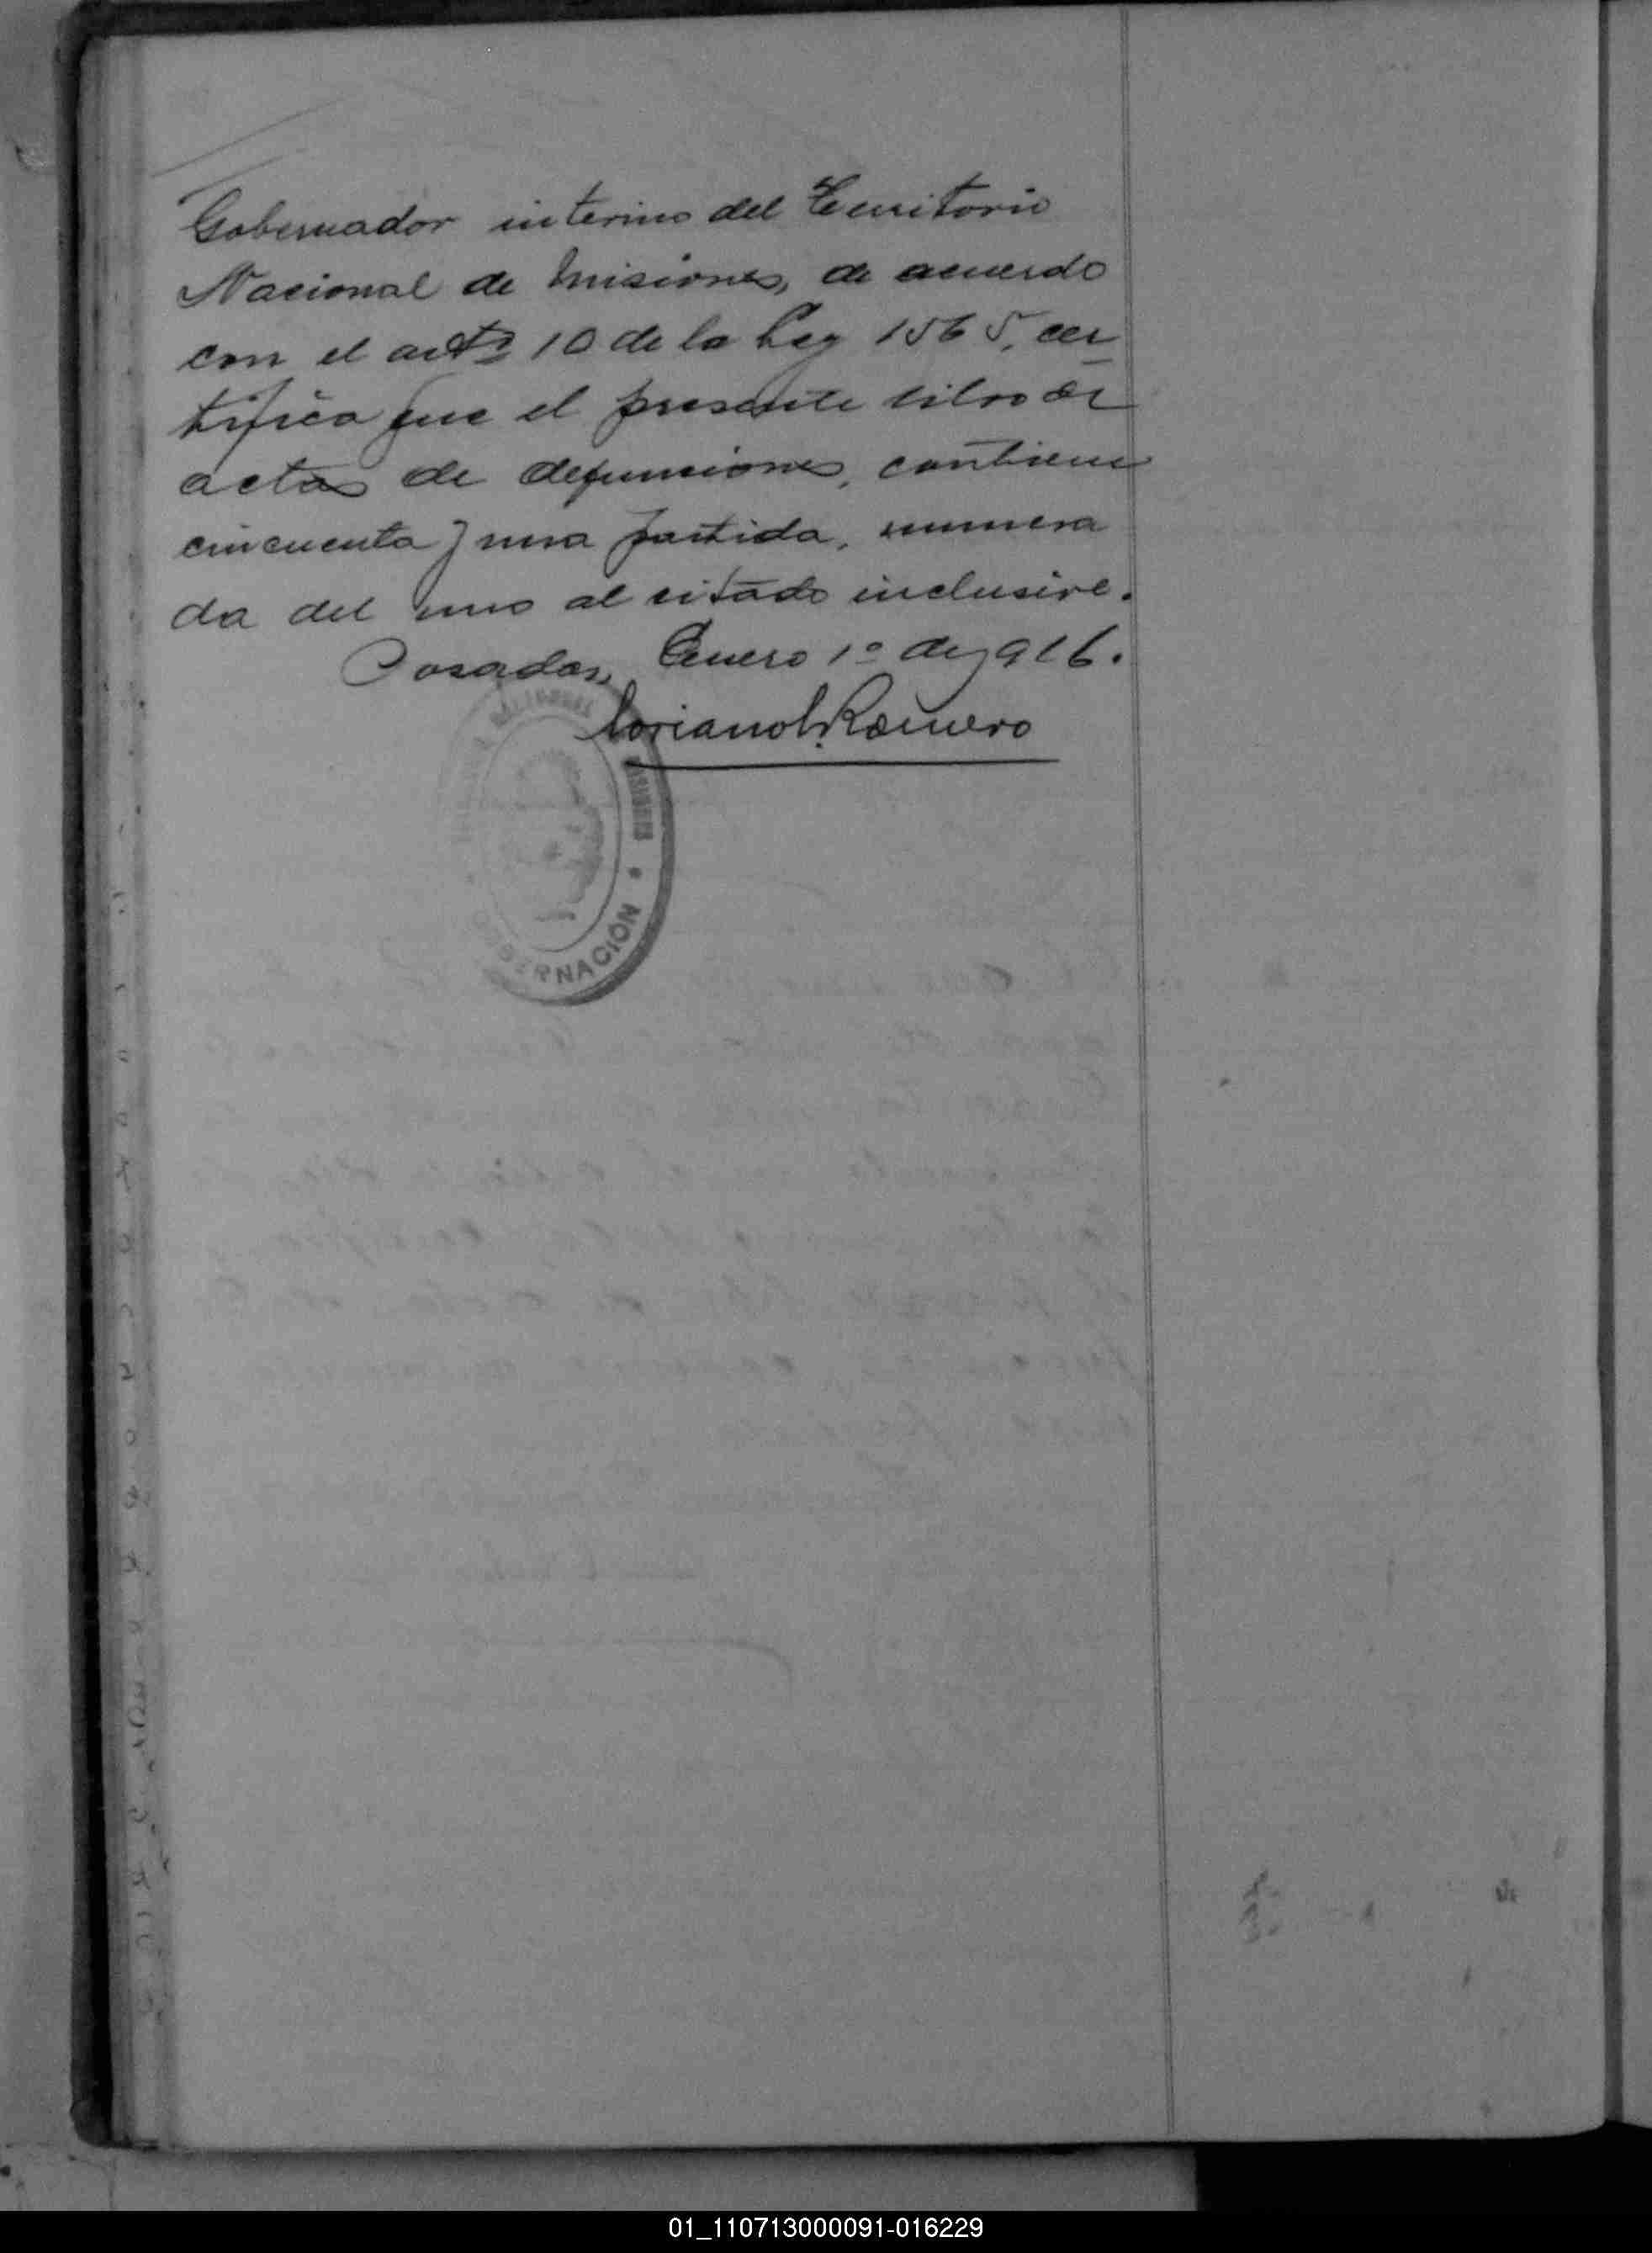 Gobernador interino del Territorio
Nacional de Misiones, de acuerdo
con el artº 10 de la Ley 1565, cer
tifica que el presente libro de
actas de defunciones, contiene
cincuenta y una partida, numera
da del uno al citado inclusive.
Posadas, Enero 1º de 916.
Romero
MISIONES
GOBERNACIÓN
01_110713000091-016229